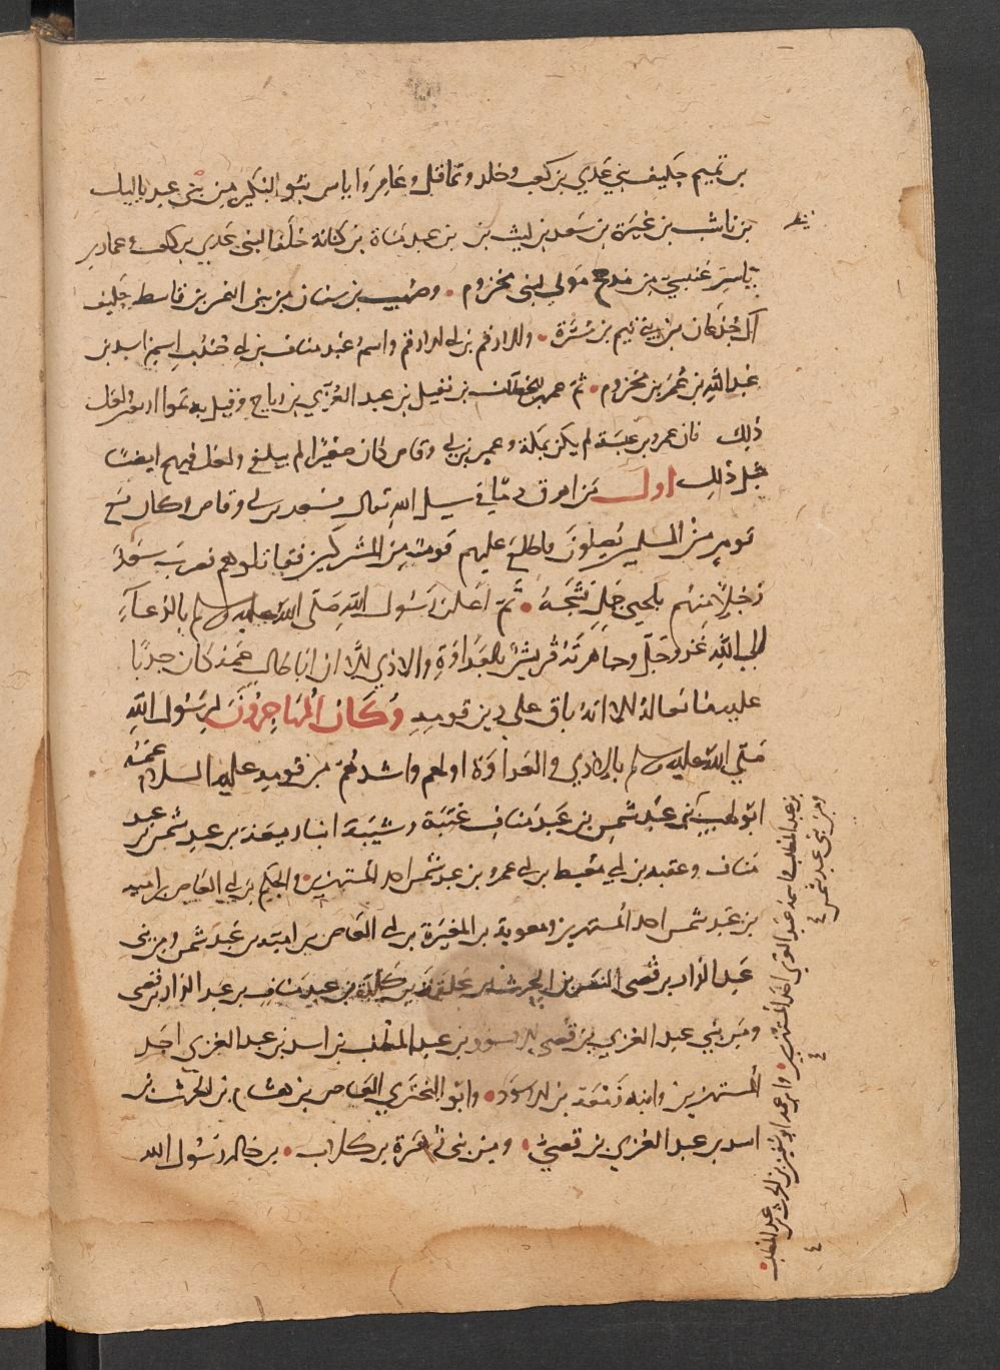 بن تميم حليف بني عدي بن كعب وخلد وعاقل وعامر واياس بنو البكير من بني عبد ياليل
بن ناشب بن غيرة بن سعد بن ليث بن بن عبد مناة بن كنانة حلفا لبني عدي بن كعب وعمار بن
ياسر عنسي من مذحج مولي لبني مخزوم • وصهيب بن سنان من بني النمر بن قاسط حليف
آل جدعان من بني تيم بن مرة • والارقم بن ابي الارقم واسمه عبد مناف بن ابي جندب اسد بن
عبد الله بن عمر بن مخزوم • ثم عمر بن الخطاب بن نفيل بن عبد العزي بن رياح وقيل به تموا اربعين ولعل
ذلك فان عمرو بن عبسة لم يكن بمكة وعمير بن ابي وقاص كان صغيرا لم يبلغ ولعل فيهم ايضا
مثل ذلك اول من اهرق دما في سبيل الله تعالي سعد بن ابي وقاص وكان مع
قوم من المسلمين يصلون فاطلع عليهم قوم من المشركين فقاتلوهم فضرب سعد
رجلا منهم بلحي جمل فشجه • ثم اعلن رسول الله صلى الله عليه وسلم بالدعاء
الي الله عز وجل وجاهرته قريش بالعداوة والاذي الا ان ابا طالب عمه كان حدبا
عليه مانعا له الا انه باق علي دين قومه وكان المجاهرون لرسول الله
صلى الله عليه وسلم بالاذي والعداوة اولهم واشدهم من قومه عليه السلام عمه
ابو لهب من بني عبد شمس بن عبد مناف عتبة وشيبة ابنا ربيعة بن عبد شمس بن عبد
مناف وعقبة بن ابي معيط بن ابي عمرو بن عبد شمس احد المستهزين • والحكم بن ابي العاص بن امية
بن عبد شمس احد المستهزين ومعوية بن المغيرة بن ابي العاص بن امية بن عبد شمس ومن بني
عبد الدار بن قصي النضر بن الحرث بن علقمة بن كلدة بن عبد مناف بن عبد الدار بن قصي
ومن بني عبد العزي بن قصي الاسود بن عبد المطلب بن اسد بن عبد العزي احد
المستهزين وابنه زمعة بن الاسود • وابو البختري العاص بن هشام بن الحرث بن
اسد بن عبد العزي بن قصي • ومن بني زهرة بن كلاب • بن خالد رسول الله
بن عبد المطلب واسمه عبد العزي احد المستهزين • وابن عمه ابو سفين بن الحرث بن عبد المطلب •
ومن بني عبد شمس